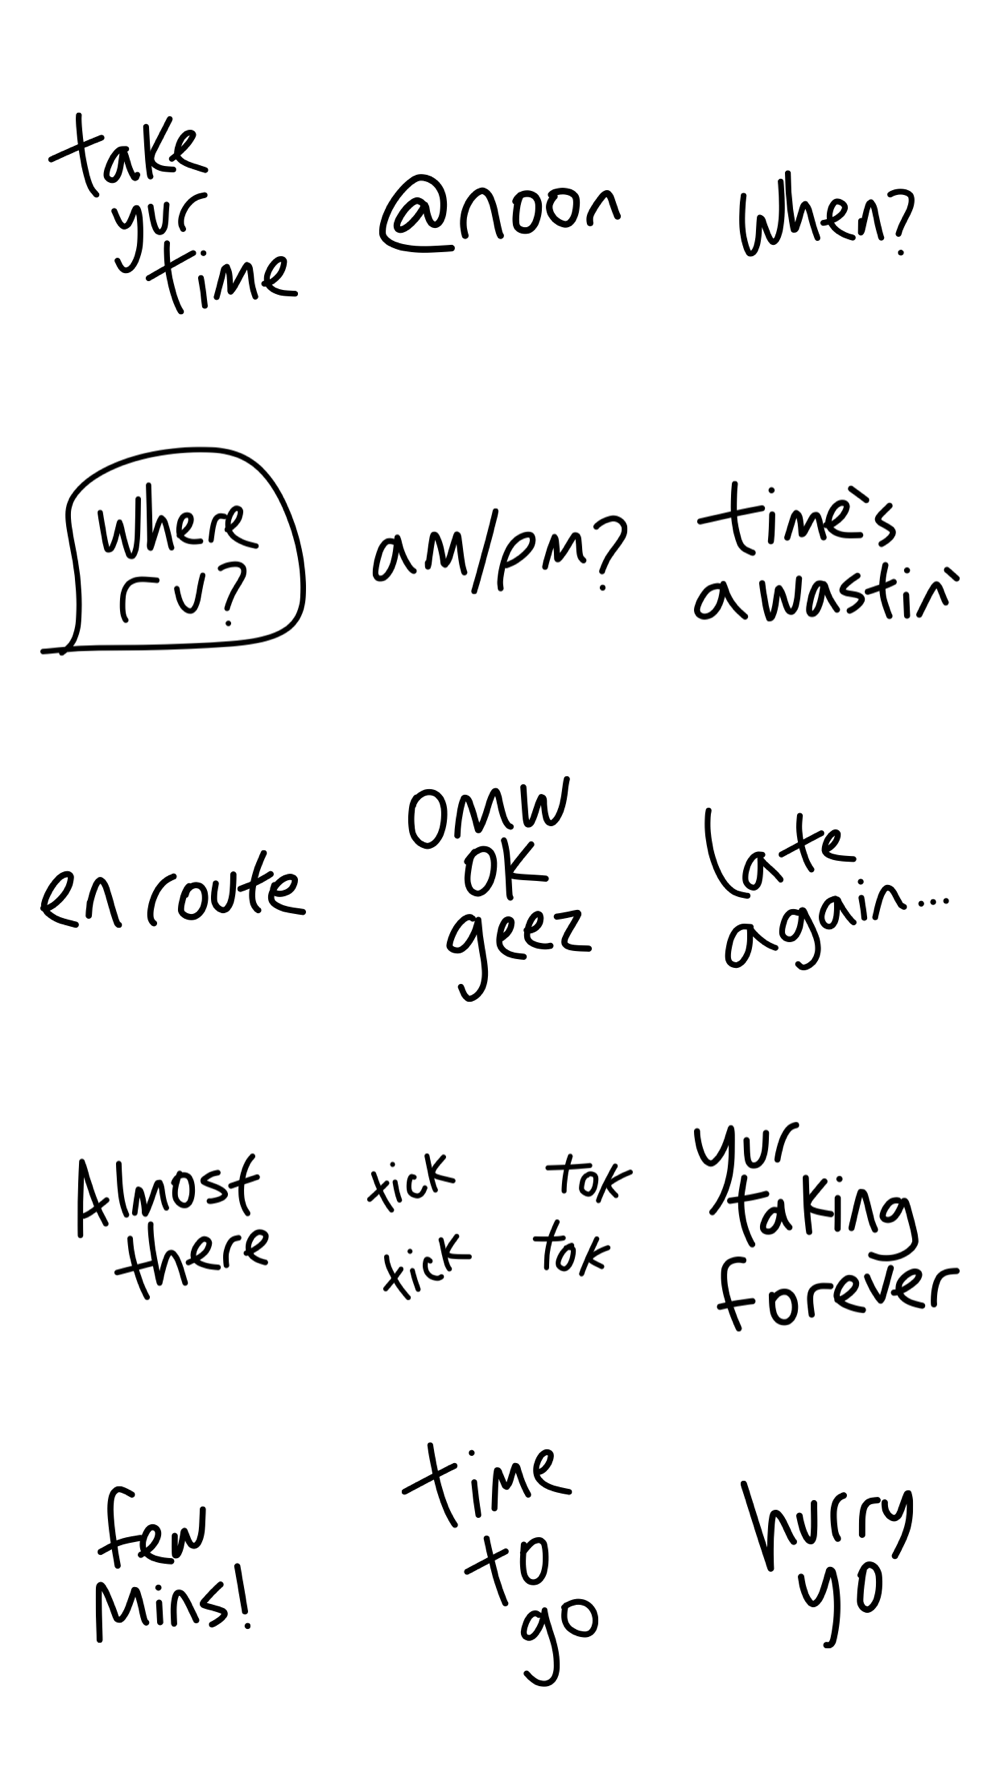 take
yur
time
@noon
When?
Where
r u?
am/pm?
time's
a wastin'
en route
OMW
OK
geez
Late
again...
Almost
there
tick tok
tick tok
yur
taking
forever
few
Mins!
time
to
go
hurry
yo